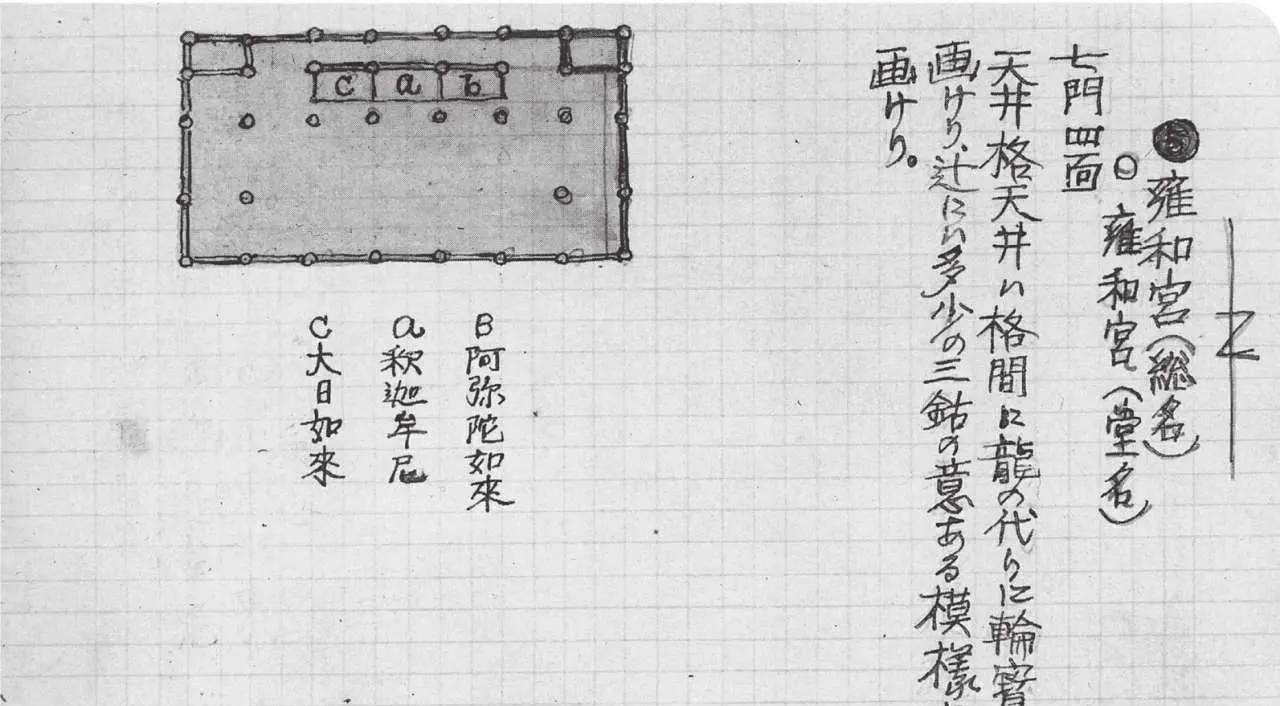 雍和宮(総名)
雍和宮(堂名)
七間四面
天井格天井ハ格間に龍の代りに輪寳
画けり、辻にハ多少の三鈷の意ある模様
画けり。
Z
C a b
B 阿弥陀如來
a 釈迦牟尼
C 大日如來